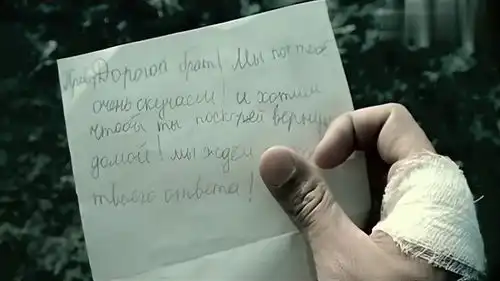 Дорогой брат! Мы по тебе
очень скучаем! и хотим
чтобы ты поскорей
домой! мы ждём
твоего ответа!